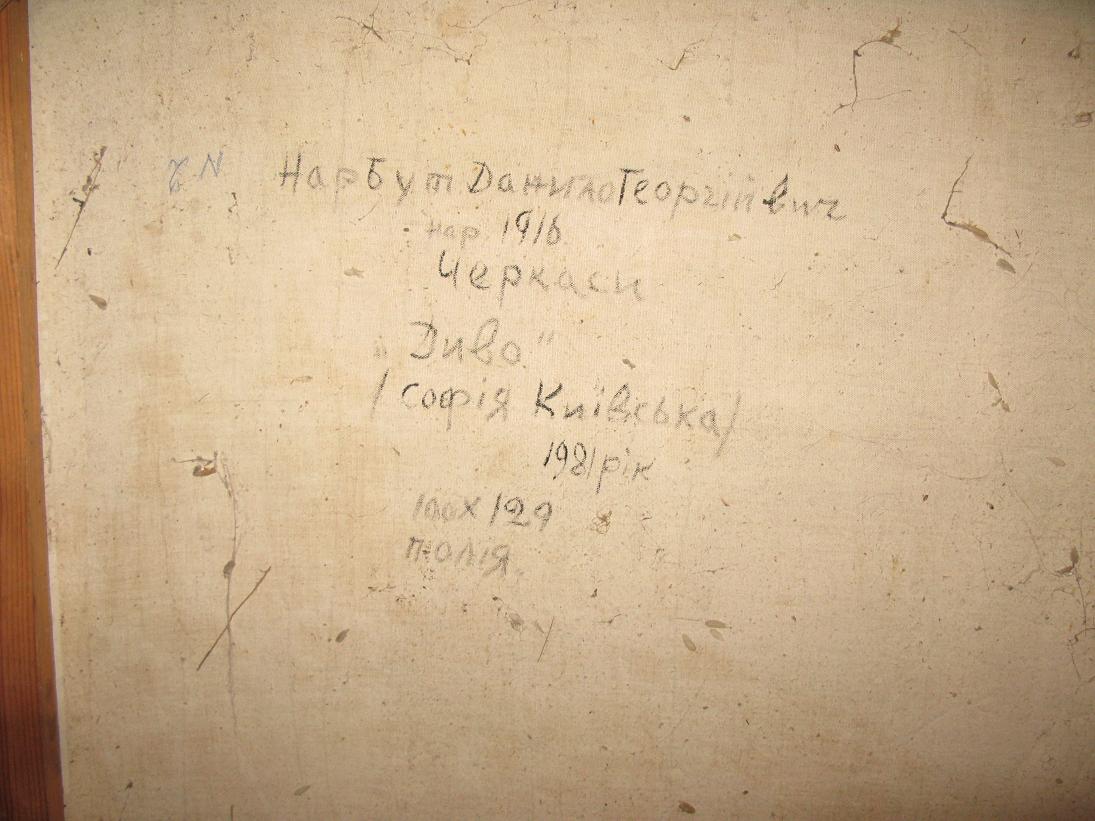 Нарбут Данило Георгійвич
нар. 1916
Черкаси
„Диво"
/Софія Київська/
1981 рік
100х129
п. олія.